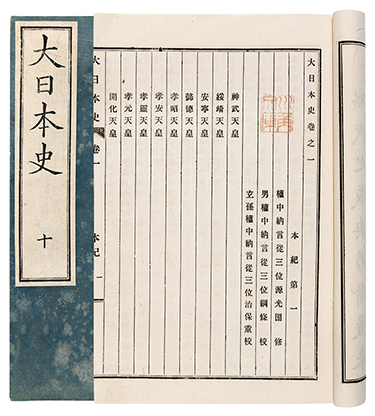 大日本史
十
大日本史卷之一
本紀第一
權中納言從三位源光圀修
男權中納言從三位綱條校
玄孫權中納言從三位治保重校
神武天皇
綏靖天皇
安寧天皇
懿德天皇
孝昭天皇
孝安天皇
孝靈天皇
孝元天皇
開化天皇
大日本史 卷一 本紀 一